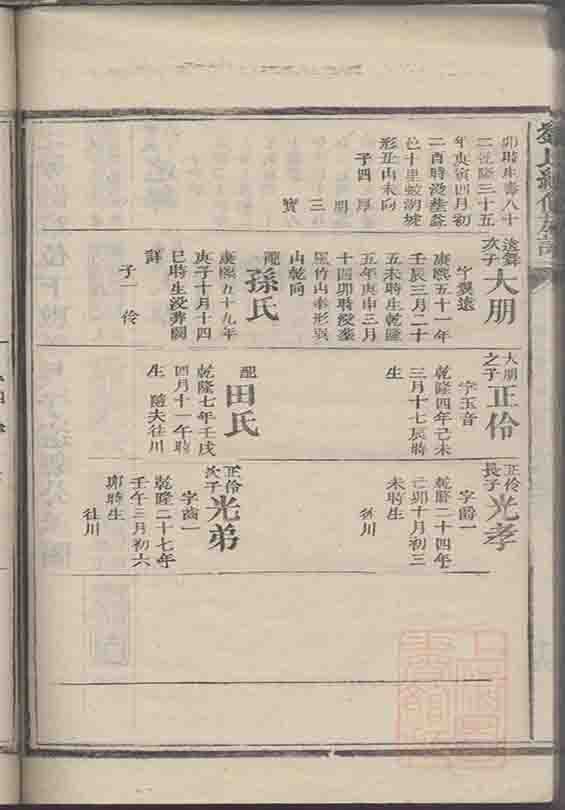 卯時生壽八十
二乾隆三十五
年庚寅四月初
二酉時沒葬益
邑十里蛟湖坡
形丑山未向
子四 厚
朋
三
寶
遠舞
次子
大朋
字冀遠
康熙五十一年
壬辰三月二十
五未時生乾隆
五年庚申三月
十四卯時沒葬
羅竹山奉形巽
山乾向
配
孫氏
康熙五十九年
庚子十月十四
巳時生沒葬闕
詳
子一 伶
大朋
之子
正伶
字玉音
乾隆四年己未
三月十七辰時
生
配
田氏
乾隆七年壬戌
四月十一午時
生 隨夫往川
正伶
長子
光孝
字爵一
乾隆二十四年
己卯十月初三
未時生
往川
正伶
次子
光弟
字齒一
乾隆二十七年
壬午三月初六
卯時生
往川